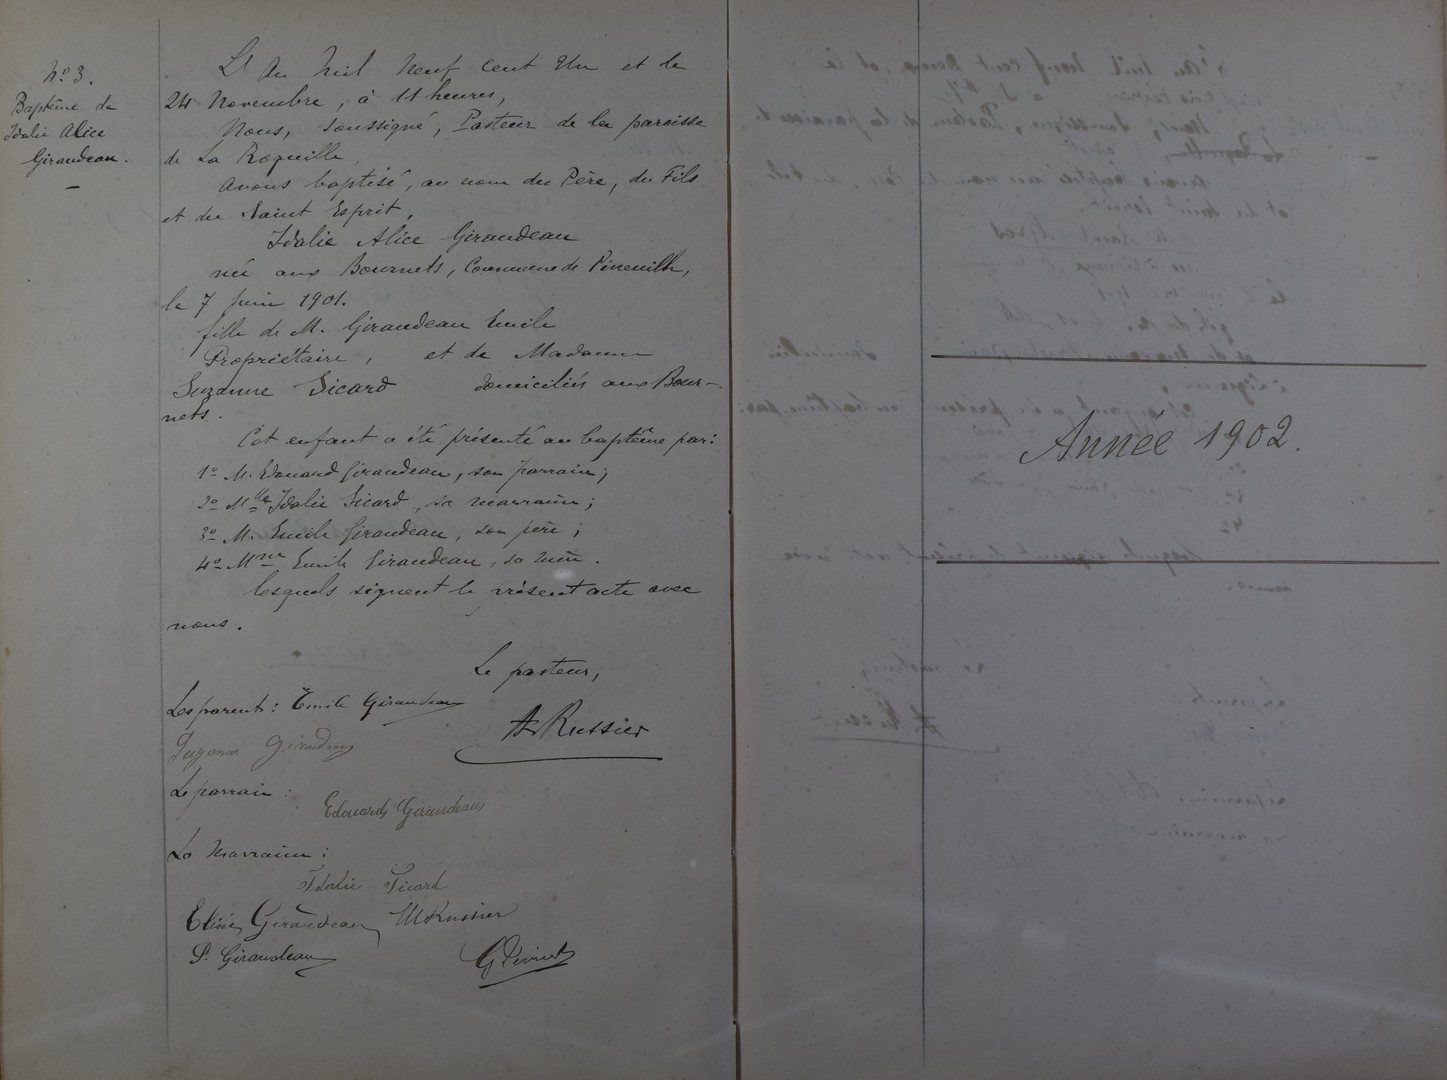 N° 3.
Baptême de
Idalie Alice
Giraudeau.
L'An Mil Neuf Cent Un et le
24 Novembre, à 11 heures,
Nous, soussigné, Pasteur de la paroisse
de La Roquille,
avons baptisé, au nom du Père, du Fils
et du Saint Esprit,
Idalie Alice Giraudeau
née aux Bournets, Commune de Pineuilh,
le 7 Juin 1901.
fille de M. Giraudeau Emile
Propriétaire, et de Madame
Suzanne Sicard domiciliés aux Bour-
nets.
Cet enfant a été présenté au baptême par:
1° M. Edouard Giraudeau, son parrain;
2° Mlle Idalie Sicard, sa marraine;
3° M. Emile Giraudeau, son père;
4° Mme Emile Giraudeau, sa mère.
lesquels signent le présent acte avec
nous.
Le pasteur,
Les parents: Emile Giraudeau
A Russier
Suzanne Giraudeau
Le parrain:
Edouard Giraudeau
La Marraine:
Idalie Sicard
Elisée Giraudeau MRussier
P. Giraudeau
Année 1902.